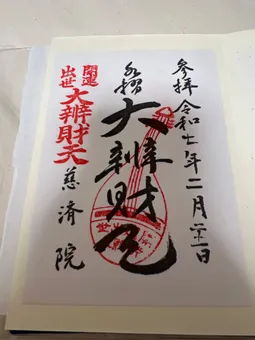 参拝 令和七年二月二十一日
大辨財天
開運
出世
大辨財天
慈済院